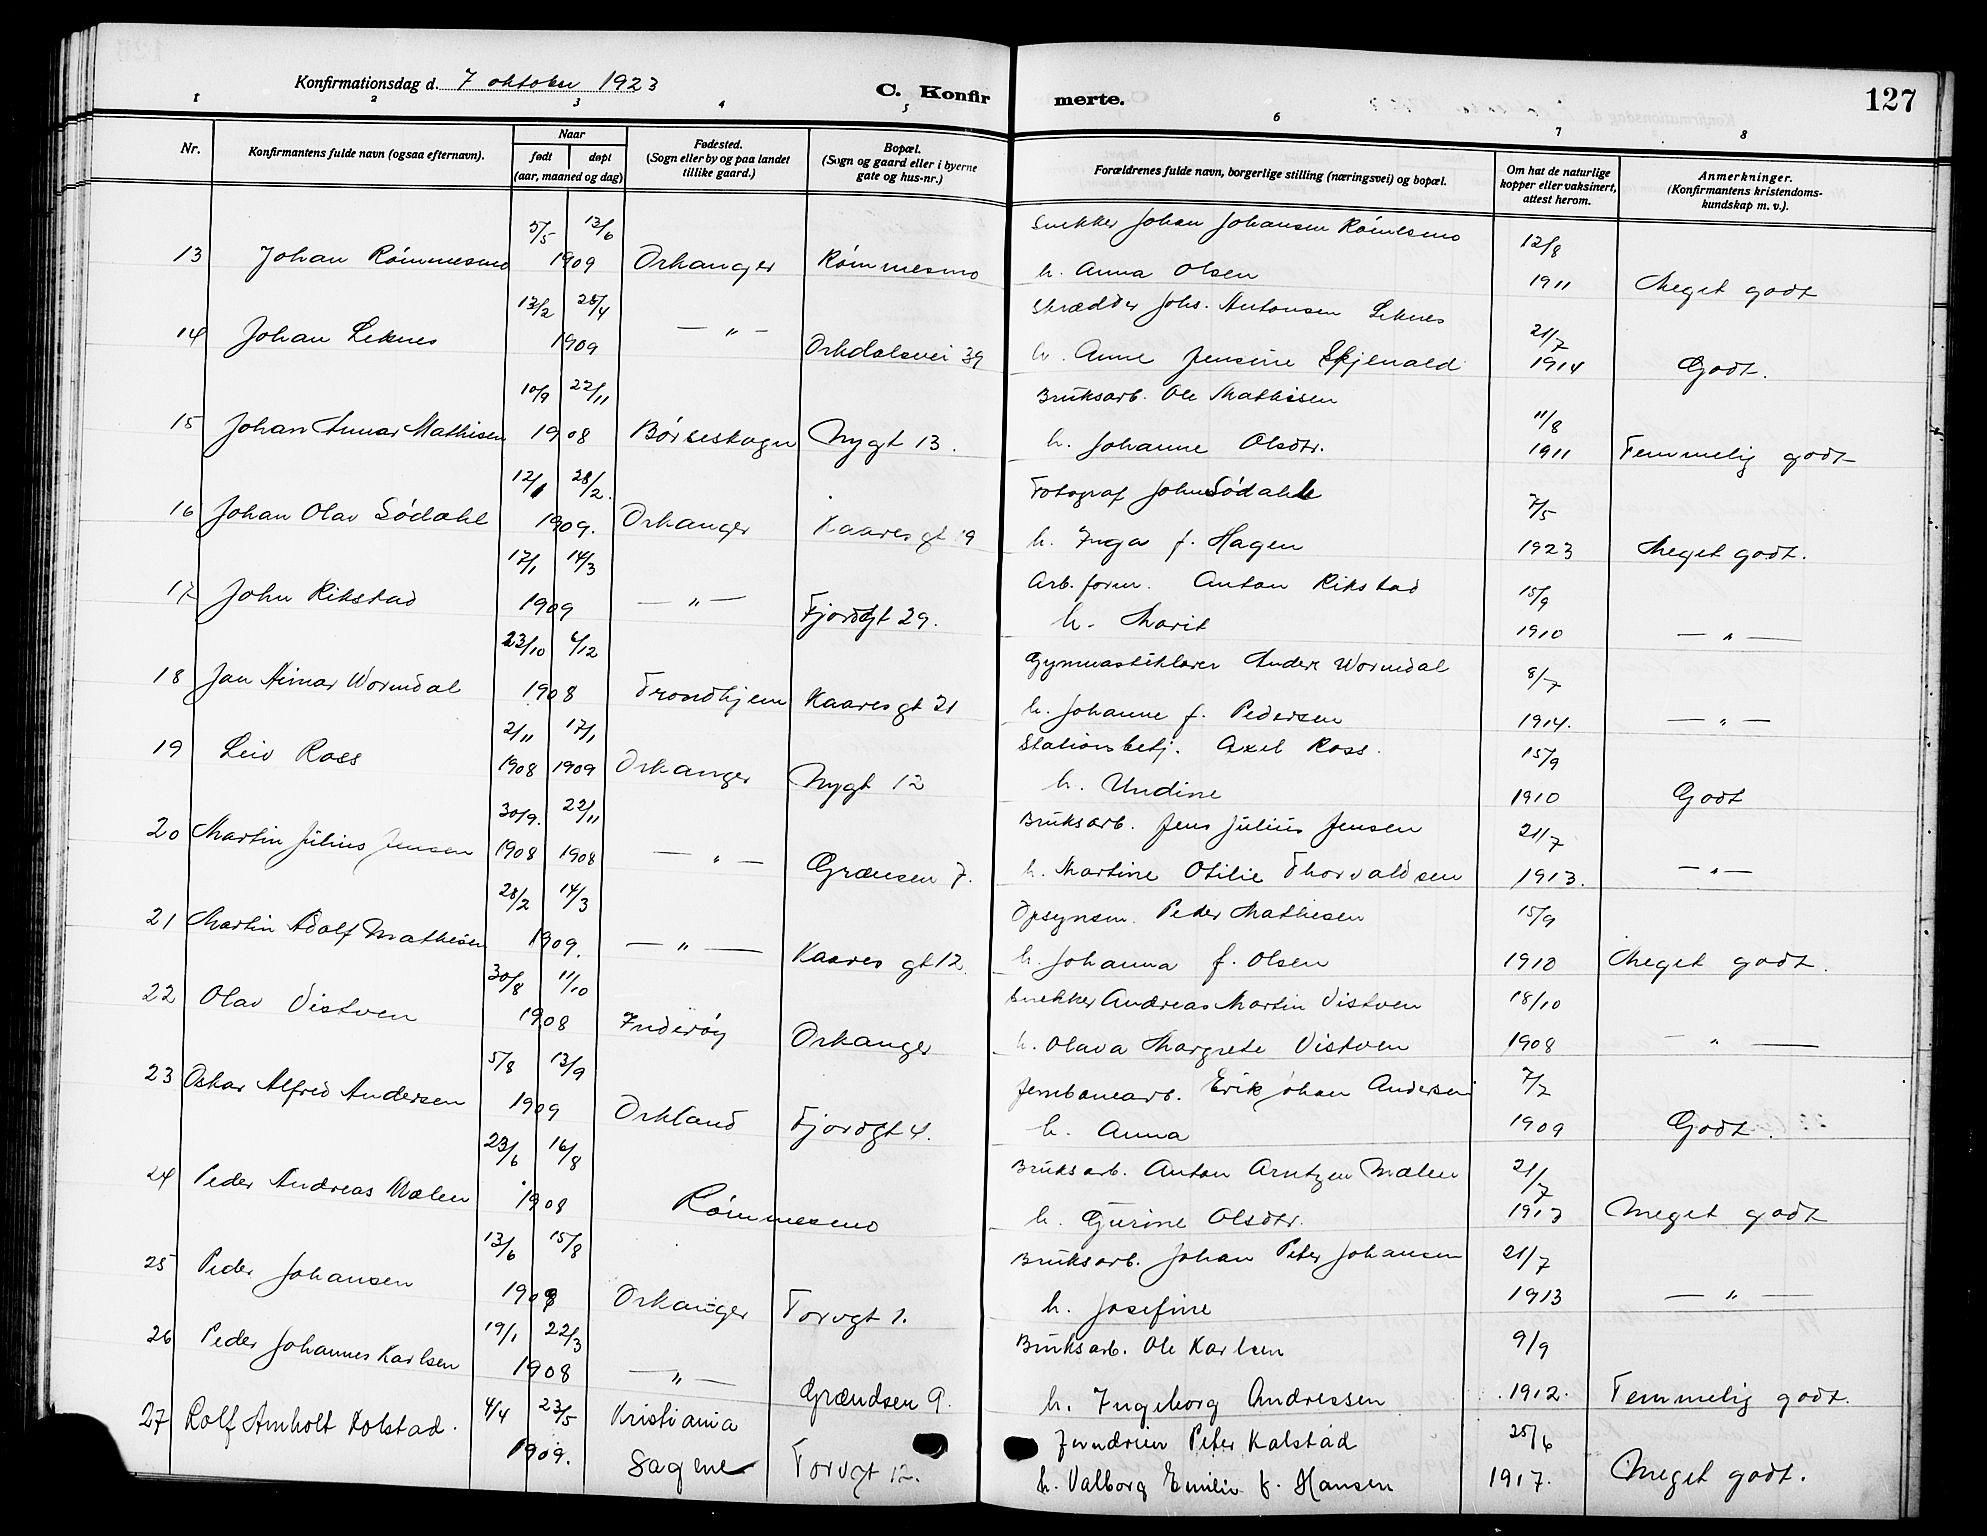 Konfirmationsdag d. 7 oktober 1923
C. Konfirmerte.
127
1 2 3 4 5 6 7 8
Nr.
Konfirmantens fulde navn (ogsaa efternavn).
Naar
født døpt
(aar, maaned og dag)
Fødested.
(Sogn eller by og paa landet
tillike gaard.)
Bopæl.
(Sogn og gaard eller i byerne
gate og hus-nr.)
Forældrenes fulde navn, borgerlige stilling (næringsvei) og bopæl.
Om hat de naturlige
kopper eller vaksinert,
attest herom.
Anmerkninger.
(Konfirmantens kristendoms-
kundskap m. v.).
5/5 13/6 Snekker Johan Johansen Rømesmo 12/8
13 Johan Rømmesmo 1909 Orkanger Rømmesmo h. Anna Olsen 1911 Meget godt
13/2 25/4 Skrædder Johs. Antonsen Leknes 21/7
14 Johan Leknes 1909 — " — Orkdalsvei 39 h. Anne Jensine Skjenald 1914 Godt.
10/9 22/11 Bruksarb. Ole Mathisen 11/8
15 Johan Annar Mathisen 1908 Børseskogn Nygt 13. h. Johanne Olsdtr. 1911 Temmelig godt
12/1 28/2. Fotograf John Sødahl 7/5
16 Johan Olav Sødahl 1909. Orkanger Kaares gt 19 h. Inga f. Hagen 1923 Meget godt.
17/1 14/3 Arb. form. Anton Rikstad 15/9
17 John Rikstad 1909 — " — Fjordgt 29. h. Marit 1910 — " —
23/10 6/12 Gymnastiklærer Anders Wormdal 8/7
18 Jan Wormdal 1908 Trondhjem Kaares gt 21 h. Johanne f. Pedersen 1914. — " —
2/11 17/1 Stationsbetj. Axel Ross. 15/9
19 Leiv Ross 1908 1909 Orkanger Nygt 12 h. Undine 1910 Godt
30/9. 22/11 Bruksarb. Jens Julius Jensen 21/7
20 Martin Julius Jensen 1908 1908 — " — Grænsen 7. h. Martine Otilie Thorvaldsen 1913. — " —
28/2 14/3 Opsynsm. Peder Mathisen 15/9
21 Martin Adolf Mathisen 1909. — " — Kaares gt 12. h. Johanna f. Olsen 1910 Meget godt.
30/8 11/10 Snekker Andreas Martin Vistven 18/10
22 Olav Vistven 1908 Inderøy Orkanger h. Olava Margrete Vistven 1908 — " —
5/8 13/9 Jernbanearb. Erik Johan Andersen 7/7
23 Oskar Alfred Andersen 1909 Orkland Fjordgt 4. h. Anna 1909 Godt.
23/6 16/8 Bruksarb. Anton Arntzen Mælen 21/7
24 Peder Andreas Mælen 1908 Rømmesmo h. Gurine Olsdtr. 1913 Meget godt
13/6 15/8 Bruksarb. Johan Peter Johansen 21/7
25 Peder Johansen 1908 Orkanger Torvgt 1. h. Josefine 1913 — " —
19/1 22/3 Bruksarb. Ole Karlsen 9/9
26 Peder Johannes Karlsen 1908 — " — Grændsen 9. h. Ingeborg Andressen 1912. Temmelig godt.
4/4 23/5 Kristiania Peter Kolstad 25/6
27 Rolf Arnholt Kolstad. 1909. Sagene Torvgt 12. h. Valborg Emilie f. Hansen 1917. Meget godt.